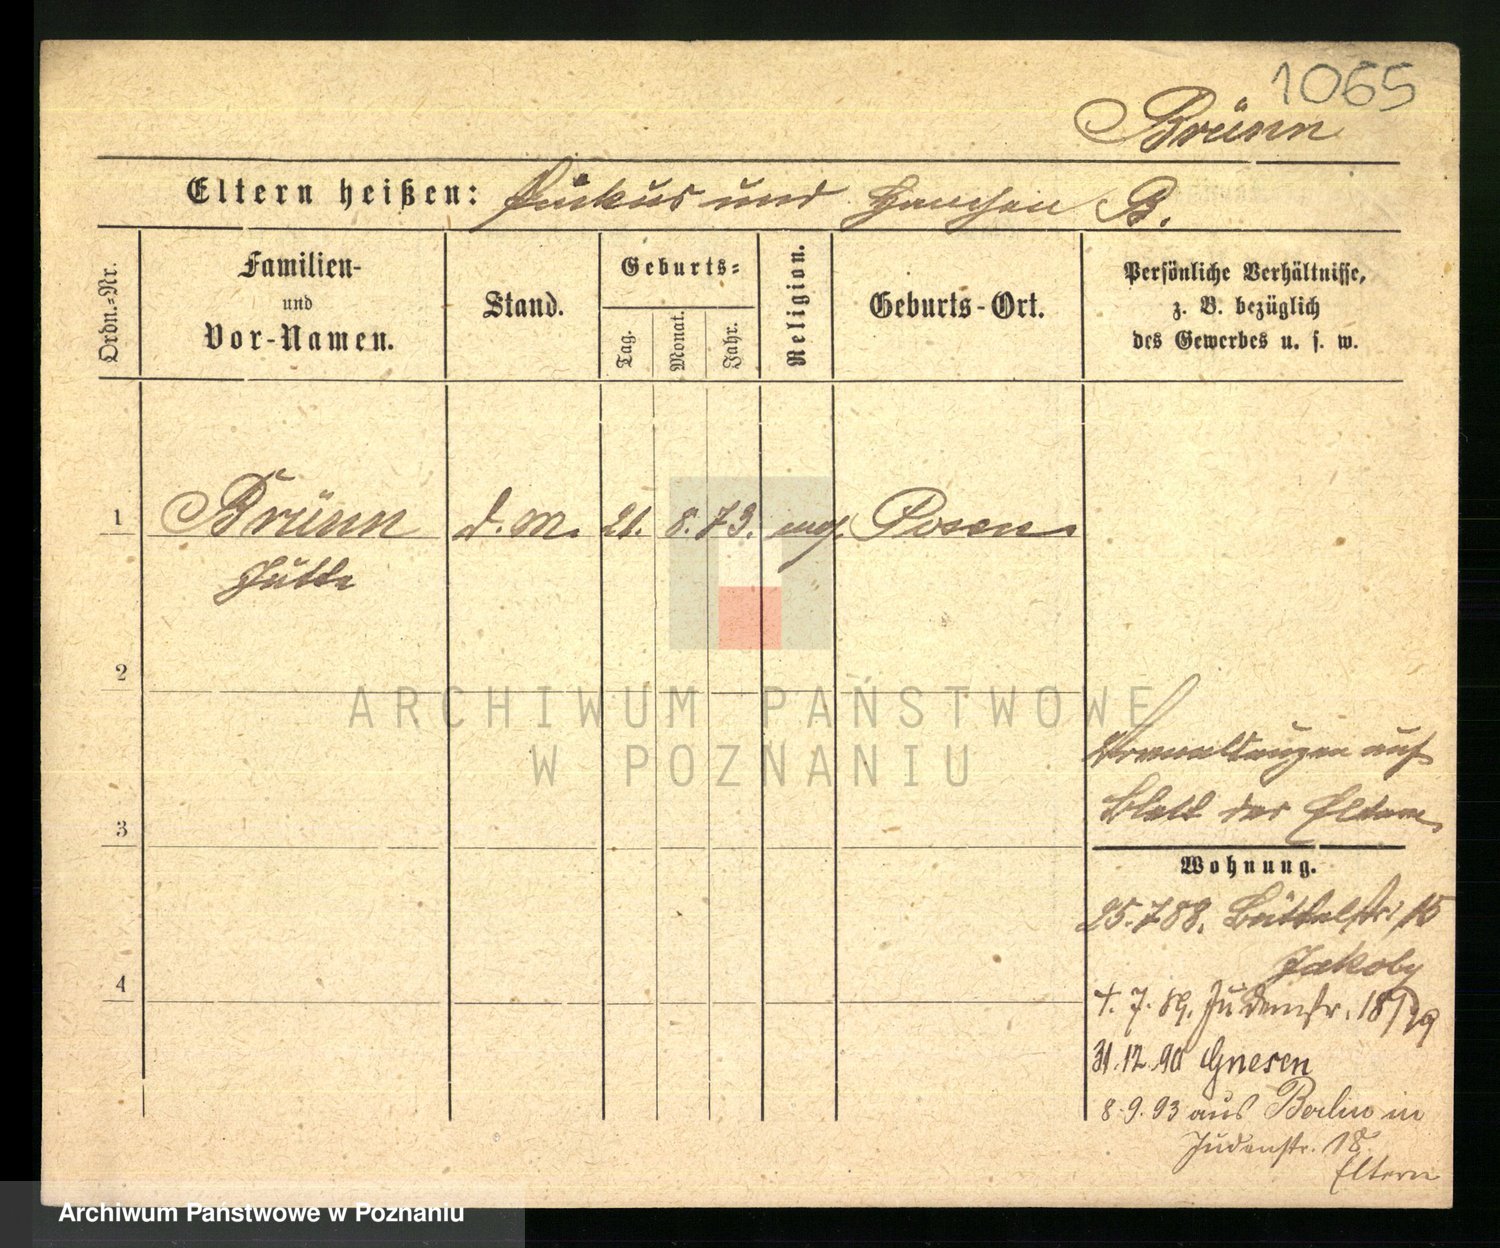 1065
Brünn
Eltern heißen: Pinkus und Hanchen B.
Ordn.-Nr.
Familien-
und
Vor-Namen.
Stand.
Geburts-
Tag.
Monat.
Jahr.
Religion.
Geburts-Ort.
Persönliche Verhältnisse,
z. B. bezüglich
des Gewerbes u. s. w.
1 Brünn d. M. 21. 8. 73. mos. Posen.
Jutta
2
3
4
auf
Blatt der Eltern
Wohnung.
25.7 88. Büttelstr. 15
Jakoby
7. 89. Judenstr. 18/19
31.12.90 Gnesen
8.9.93 aus Berlin in
Judenstr. 18
Eltern
ARCHIWUM PAŃSTWOWE
W POZNANIU
Archiwum Państwowe w Poznaniu